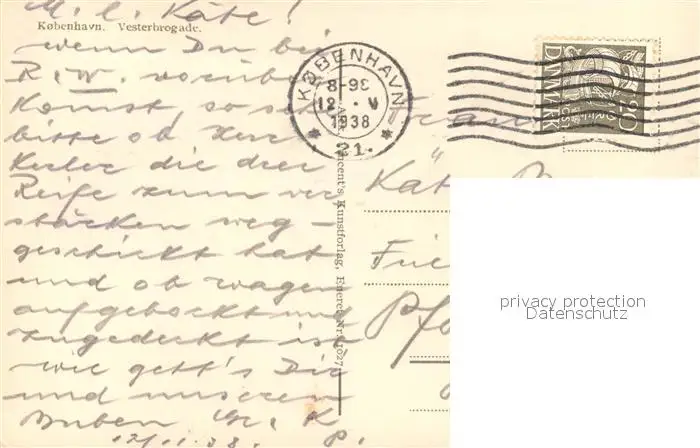 M. l. Käte!
København. Vesterbrogade.
wenn Du bei
R. W. vorüber
kommst, so sieh
bitte ob Herr
Kerler die drei
Reife zum ver
stärken weg-
geschickt hat
und ob wagen
aufgebockt und
zugedeckt ist
wie geht's Dir
und unseren
Buben Gr. K
12/11.38. p.
KØBENHAVN
8-9E
12. V
1938
* 21. *
DANMARK
20
Alex. Vincent's Kunstforlag, Eneret Nr. 1027
Frau
Käte
Frie
Pfo
privacy protection
Datenschutz